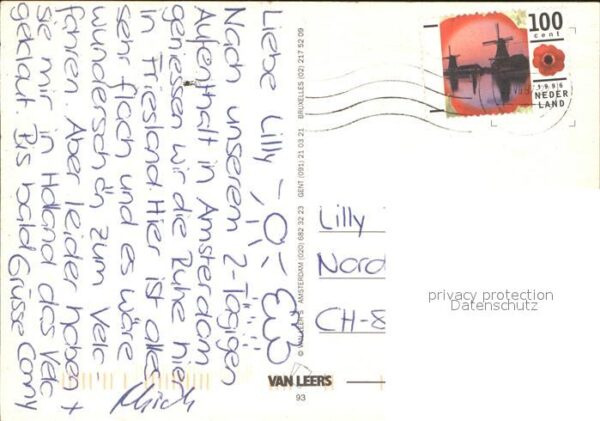 Liebe Lilly
Nach unserem 2-Tägigen
Aufenthalt in Amsterdam
geniessen wir die Ruhe hier
in Friesland Hier ist alles
sehr flach und es wäre
wunderschön zum Velo
fahren. Aber leider haben
sie mir in Holland das Velo
geklaut. Bis bald Grüsse Conny
+
© VAN LEER'S - AMSTERDAM (020) 682 32 23 GENT (091) 21 03 21 BRUXELLES (02) 217 52 09
100
cent
1996
NEDER
LAND
Lilly
Nord
CH-8
privacy protection
Datenschutz
VAN LEER'S
93